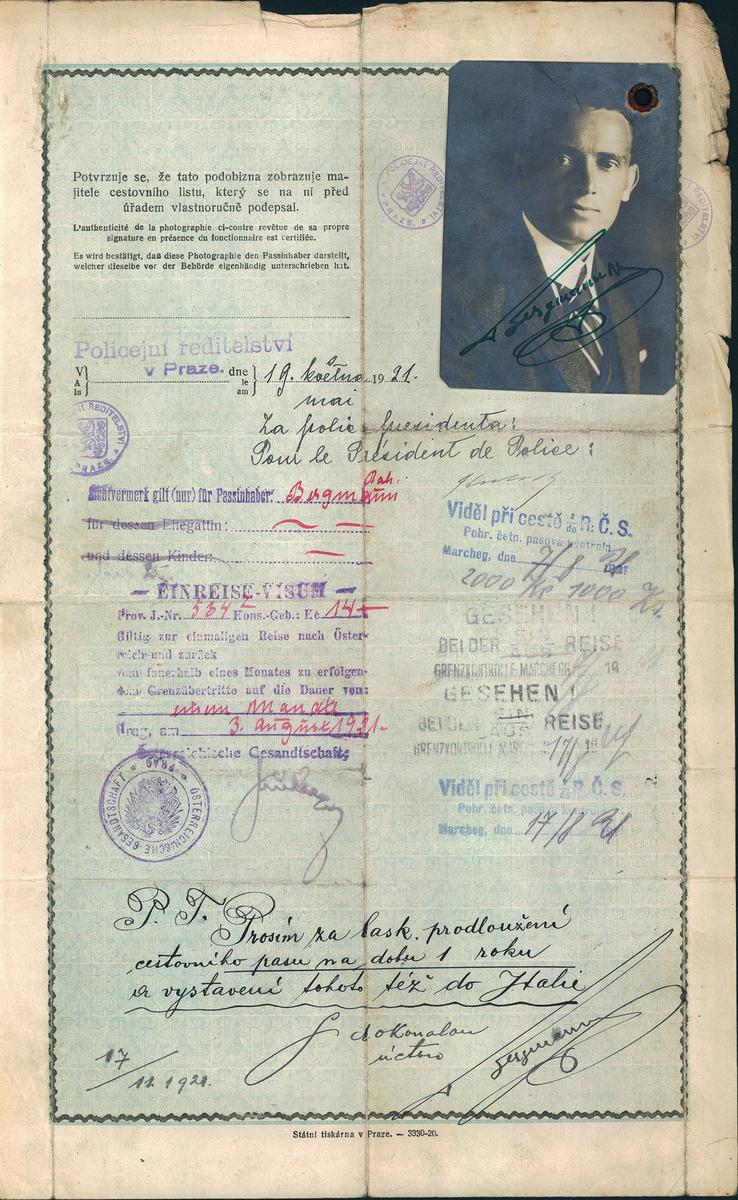 Potvrzuje se, že tato podobizna zobrazuje ma-
jitele cestovního listu, který se na ní před
úřadem vlastnoručně podepsal.
L'authenticité de la photographie ci-contre revêtue de sa propre
signature en présence du fonctionnaire est certifiée.
Es wird bestätigt, daß diese Photographie den Passinhaber darstellt,
welcher dieselbe vor der Behörde eigenhändig unterschrieben hat.
POLICEJNÍ ŘEDITELSTVÍ
PRAZE.
Bergmann
Policejní ředitelství
v Praze.
V
A
in
dne
le
am
19. května 1921.
mai
Za polic. presidenta:
Pour le Président de Police:
Sichtvermerk gilt (nur) für Passinhaber: Bergmann
für dessen Ehegattin:
und dessen Kinder:
— EINREISE-VISUM —
Prov. J.-Nr. 5342 Kons.-Geb.: Kč 14—
Giltig zur einmaligen Reise nach Öster-
reich und zurück
vom innerhalb eines Monates zu erfolgen-
den Grenzübertritte auf die Dauer von:
einem Monate
Prag, am 3. August 1921.
Österreichische Gesandtschaft:
ÖSTERREICHISCHE GESANDTSCHAFT
PRAG
Viděl při cestě z do R. Č. S.
Pohr. četn. pasová kontrola
Marcheg, dne 7/8 1921
2000 Kč 1000 Kr.
GESEHEN!
BEI DER EIN AUS REISE
GRENZKONTROLLE MARCHEGG 19
GESEHEN!
BEI DER EIN AUS REISE
GRENZKONTROLLE MARCHEGG 17/8 19
Viděl při cestě z do R. Č. S.
Pohr. četn. pasová kontrola
Marcheg, dne 17/8 21
P. T. Prosím za lask. prodloužení
cestovního pasu na dobu 1 roku
a vystavení tohoto též do Italie
S dokonalou
úctou
Bergmann
17/11.1921.
Státní tiskárna v Praze. — 3330-20.